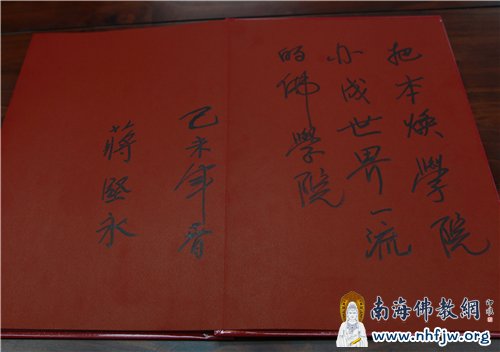 把本焕學院
办成世界一流
的佛學院
乙未年春
蔣坚永
南海佛教網
www.nhfjw.org